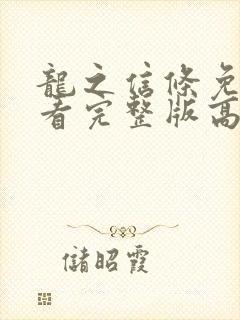 龍之信條免
看完整版高
儲昭霞